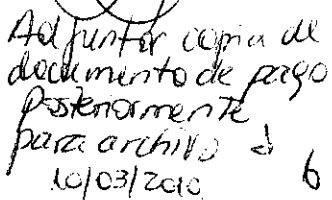 Adjuntar copia de
documento de pago
posteriormente
para archivo
10/03/2010
6